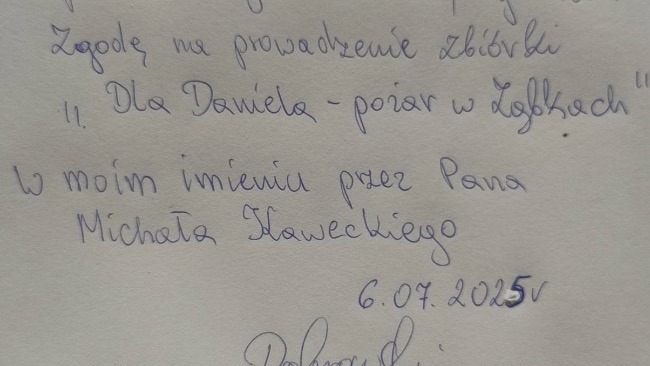 Zgodę na prowadzenie zbiórki
„Dla Daniela - pożar w Ząbkach"
w moim imieniu przez Pana
Michała Kaweckiego
6.07.2025r